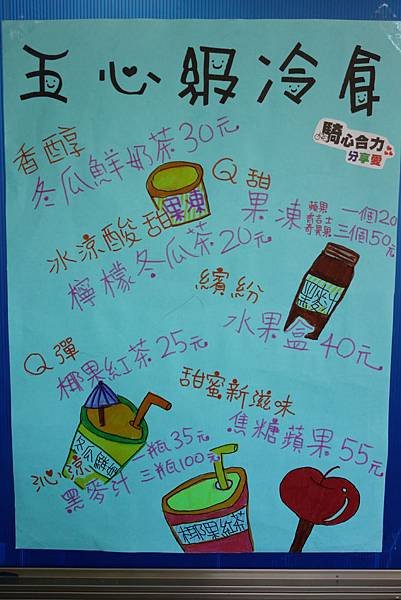 五心級冷食
騎心合力
分享愛
香醇
冬瓜鮮奶茶30元
果凍
Q甜
果凍
蘋果
百吉士
奇異果
一個20
三個50元
冰涼酸甜
檸檬冬瓜茶20元
繽紛
水果盒40元
黑麥汁
Q彈
椰果紅茶25元
甜蜜新滋味
焦糖蘋果55元
沁涼
黑麥汁
一瓶35元
三瓶100元
椰果紅茶